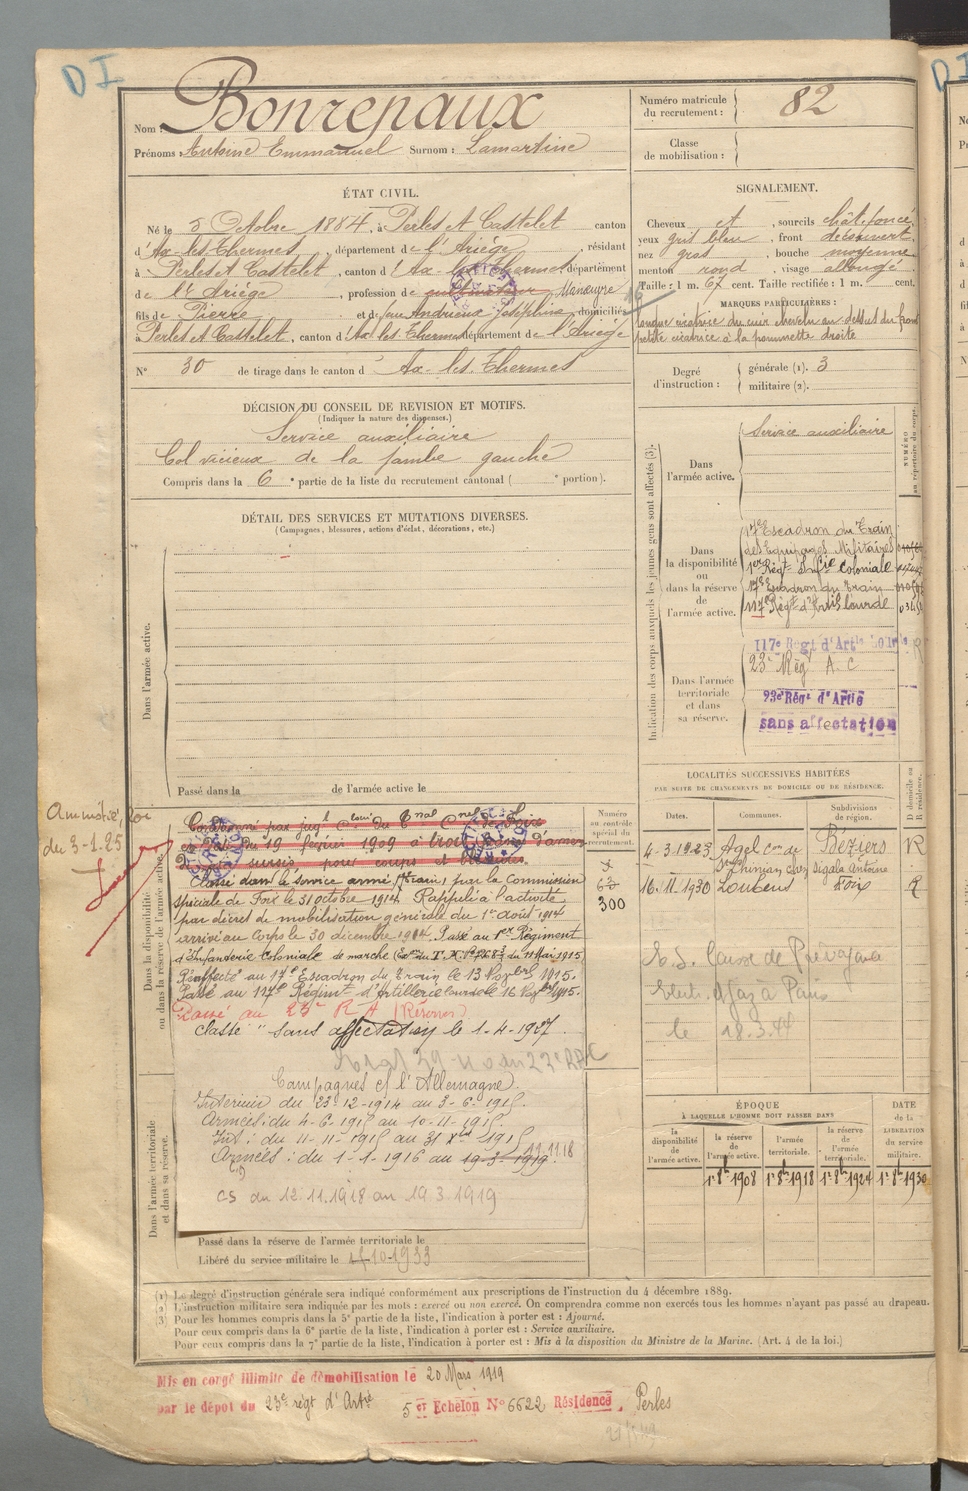 DI
Nom : Bonrepaux
Prénoms : Antoine Emmanuel Surnom : Lamartine
Numéro matricule du recrutement : 82
Classe de mobilisation :
ÉTAT CIVIL.
Né le 5 Octobre 1884, à Perles et Castelet canton
d'Ax-les-Thermes, département de l'Ariège, résidant
à Perles et Castelet, canton d'Ax-les-Thermes, département
de l'Ariège, profession de cultivateur Manœuvre
fils de Pierre et de feue Andrieux Joséphine domiciliés
à Perles et Castelet, canton d'Ax-les-Thermes département de l'Ariège
N° 30 de tirage dans le canton d' Ax-les-Thermes
SIGNALEMENT.
Cheveux et, sourcils chât. foncé,
yeux gris bleu, front découvert,
nez gros, bouche moyenne
menton rond, visage allongé
Taille : 1 m. 67 cent. Taille rectifiée : 1 m. cent.
MARQUES PARTICULIÈRES :
longue cicatrice du cuir chevelu au dessus du front
petite cicatrice à la pommette droite
Degré d'instruction : générale (1). 3
militaire (2).
DÉCISION DU CONSEIL DE REVISION ET MOTIFS.
(Indiquer la nature des dispenses.)
Service auxiliaire
Cal vicieux de la jambe gauche
Compris dans la 6e partie de la liste du recrutement cantonal ( e portion).
DÉTAIL DES SERVICES ET MUTATIONS DIVERSES.
(Campagnes, blessures, actions d'éclat, décorations, etc.)
Dans l'armée active.
Passé dans la de l'armée active le
Indication des corps auxquels les jeunes gens sont affectés (3).
NUMÉRO au répertoire du corps.
Dans l'armée active.
Service auxiliaire
Dans la disponibilité ou dans la réserve de l'armée active.
17e Escadron du Train
des Equipages Militaires
1er Régt Infie Coloniale
17e Escadron du Train
117e Régt d'Artil lourde
Dans l'armée territoriale et dans sa réserve.
117e Régt d'Artie Lourde
23e Rég A. C
23e Régt d'Artie
sans affectation
LOCALITÉS SUCCESSIVES HABITÉES
PAR SUITE DE CHANGEMENTS DE DOMICILE OU DE RÉSIDENCE.
Dates. Communes. Subdivisions de région. D domicile ou R résidence.
4-3-1923 Agel con de St Chinian chez Sigala Antoine Béziers R
16.11.1930 Loubens Foix R
le 18.3.44
Amnistié, loi
du 3-1-25
Dans la disponibilité ou dans la réserve de l'armée active.
Numéro au contrôle spécial du recrutement.
300
Condamné par jugt du Tnal Cnel de Foix
en date du 19 février 1909 à trois
Classé dans le service armé (Train) par la Commission
spéciale de Foix le 31 octobre 1914 Rappelé à l'activité
par décret de mobilisation générale du 1er août 1914
arrivé au Corps le 30 décembre 1914. Passé au 1er Régiment
d'Infanterie Coloniale de marche du 11 Mai 1915
Réaffecté au 17e Escadron du Train le 13 1915.
Passé au 117e Régiment d'Artillerie lourde le 16 1915.
Passé au 23e R A (Réserves)
Classé "sans affectation le 1-4-1927.
Campagnes c/ l'Allemagne.
Intérieur du 23-12-1914 au 3-6-1915.
Armées: du 4-6-1915 au 10-11-1915.
Int: du 11-11-1915 au 31 Xbre 1915
Armées: du 1-1-1916 au 19-3-1919 11.11.18
CS du 12.11.1918 au 19.3.1919
Dans l'armée territoriale et dans sa réserve.
Passé dans la réserve de l'armée territoriale le
Libéré du service militaire le 10-1933
ÉPOQUE
À LAQUELLE L'HOMME DOIT PASSER DANS
DATE de la LIBÉRATION du service militaire.
la disponibilité de l'armée active. la réserve de l'armée active. l'armée territoriale. la réserve de l'armée territoriale.
1er 8bre 1908 1er 8bre 1918 1er 8bre 1924 1er 8bre 1930
(1) Le degré d'instruction générale sera indiqué conformément aux prescriptions de l'instruction du 4 décembre 1889.
(2) L'instruction militaire sera indiquée par les mots : exercé ou non exercé. On comprendra comme non exercés tous les hommes n'ayant pas passé au drapeau.
(3) Pour les hommes compris dans la 5e partie de la liste, l'indication à porter est : Ajourné.
Pour ceux compris dans la 6e partie de la liste, l'indication à porter est : Service auxiliaire.
Pour ceux compris dans la 7e partie de la liste, l'indication à porter est : Mis à la disposition du Ministre de la Marine. (Art. 4 de la loi.)
Mis en congé illimité de démobilisation le 20 Mars 1919
par le dépot du 23e régt d'Artie 5 er Echelon N° 6622 Résidence, Perles